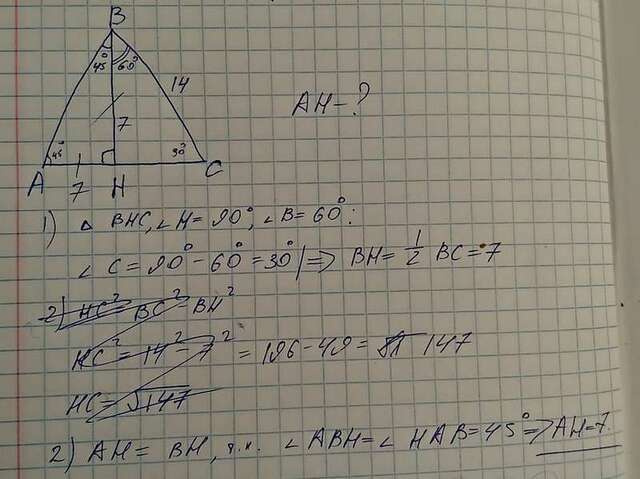 B
45° 60°
14
AH-?
7
45° 30°
A H C
7
1) △ BHC, ∠H=90°, ∠B=60°:
∠ C=90°-60°=30° |=> BH= 1/2 BC=7
2) HC²=BC²-BH²
HC²=14²-7²=196-49= 147
HC=√147
2) AH= BH, т.к. ∠ABH=∠HAB=45°=>AH=7.